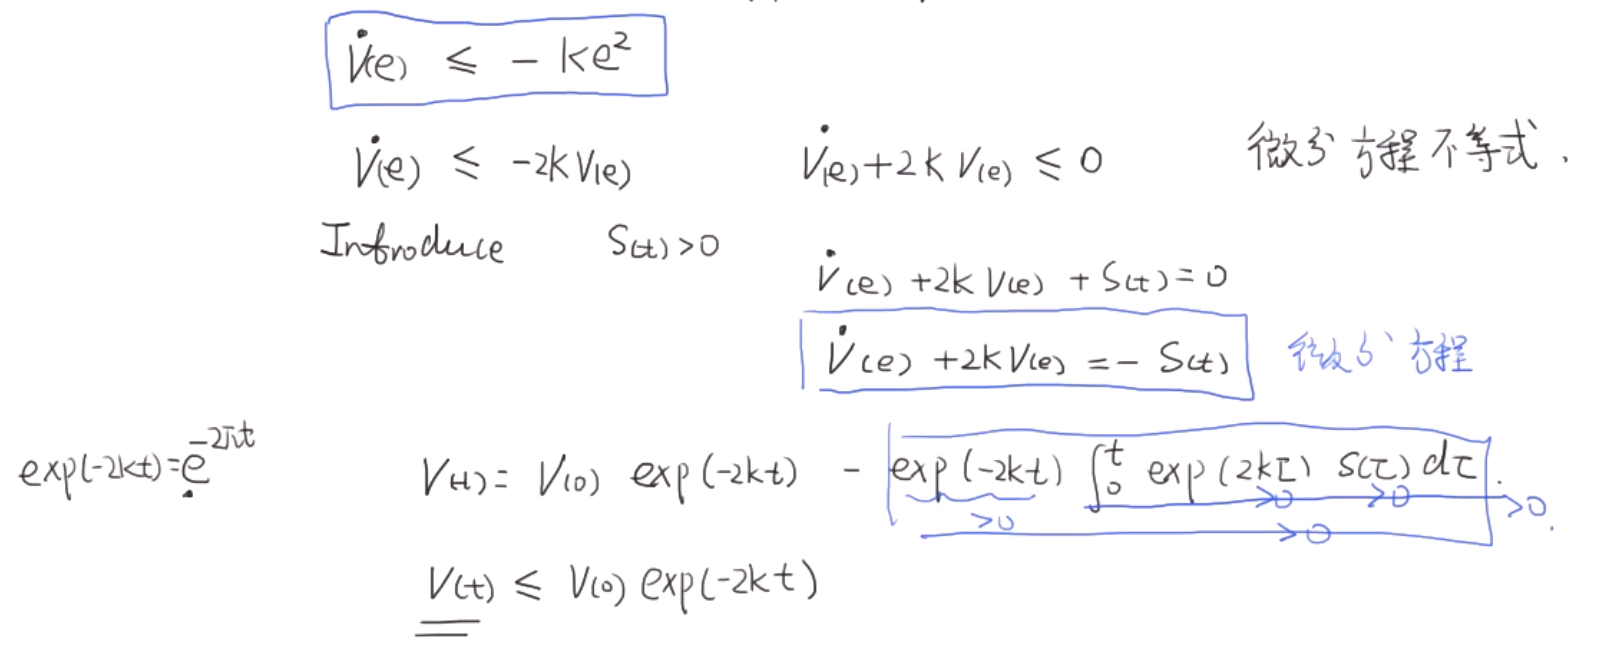 V̇(e) ≤ - ke²
V̇(e) ≤ -2kV(e) V̇(e)+2k V(e) ≤ 0 微分方程不等式.
Introduce S(t)>0
V̇(e) +2k V(e) + S(t)=0
V̇(e) +2kV(e) =- S(t) 微分方程
exp(-2kt)=e^-2kt V(t)= V(0) exp(-2kt) - exp(-2kt) ∫₀ᵗ exp(2kτ) S(τ) dτ.
>0 >0 >0 >0.
>0
V(t) ≤ V(0) exp(-2kt)